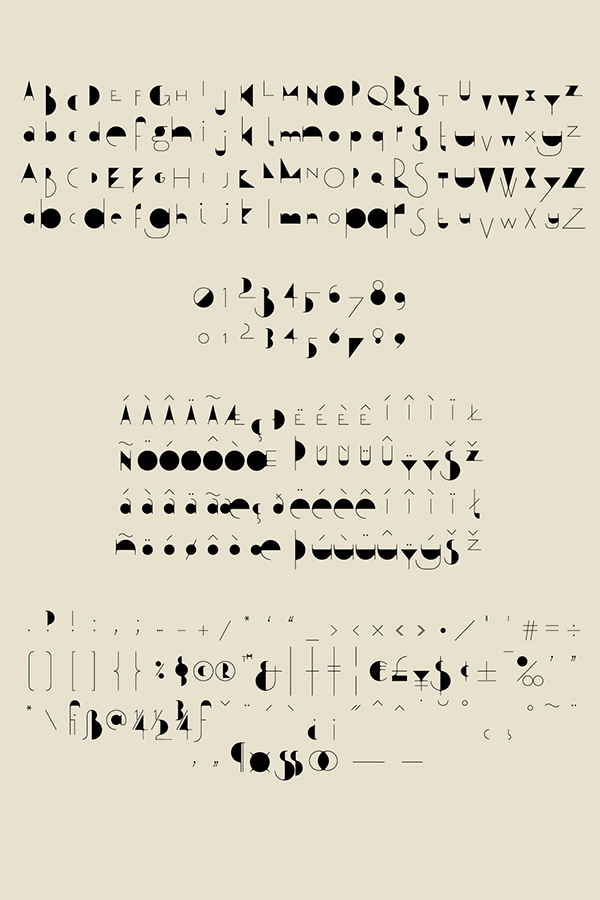 A B C D E F G H I J K L M N O P Q R S T U V W X Y Z
a b c d e f g h i j k l m n o p q r s t u v w x y z
A B C D E F G H I J K L M N O P Q R S T U V W X Y Z
a b c d e f g h i j k l m n o p q r s t u v w x y z
0 1 2 3 4 5 6 7 8 9
0 1 2 3 4 5 6 7 8 9
Á À Â Ä Ã Æ Ç Ð Ë É È Ê Í Î Ì Ï Ł
Ñ Ö Ó Ø Ô Ò Œ Þ Ú Ù Ü Û Ÿ Ý Š Ž
á à â ä ã æ ç ð ë é è ê í î ì ï ł
ñ ö ó ø ô ò œ þ ú ù ü û ÿ ý š ž
. ? ! : , ; … – + / * ‘ “ _ > < × ‹ › • / " ' # = ÷
( ) [ ] { } % $ © ® ™ & | † ‡ ¦ € £ ¥ $ ¢ ± ¯ ‰ ’ ”
* \ fi ß @ ½ ¼ ¾ ƒ
’ „ ¶ ¤ § — –